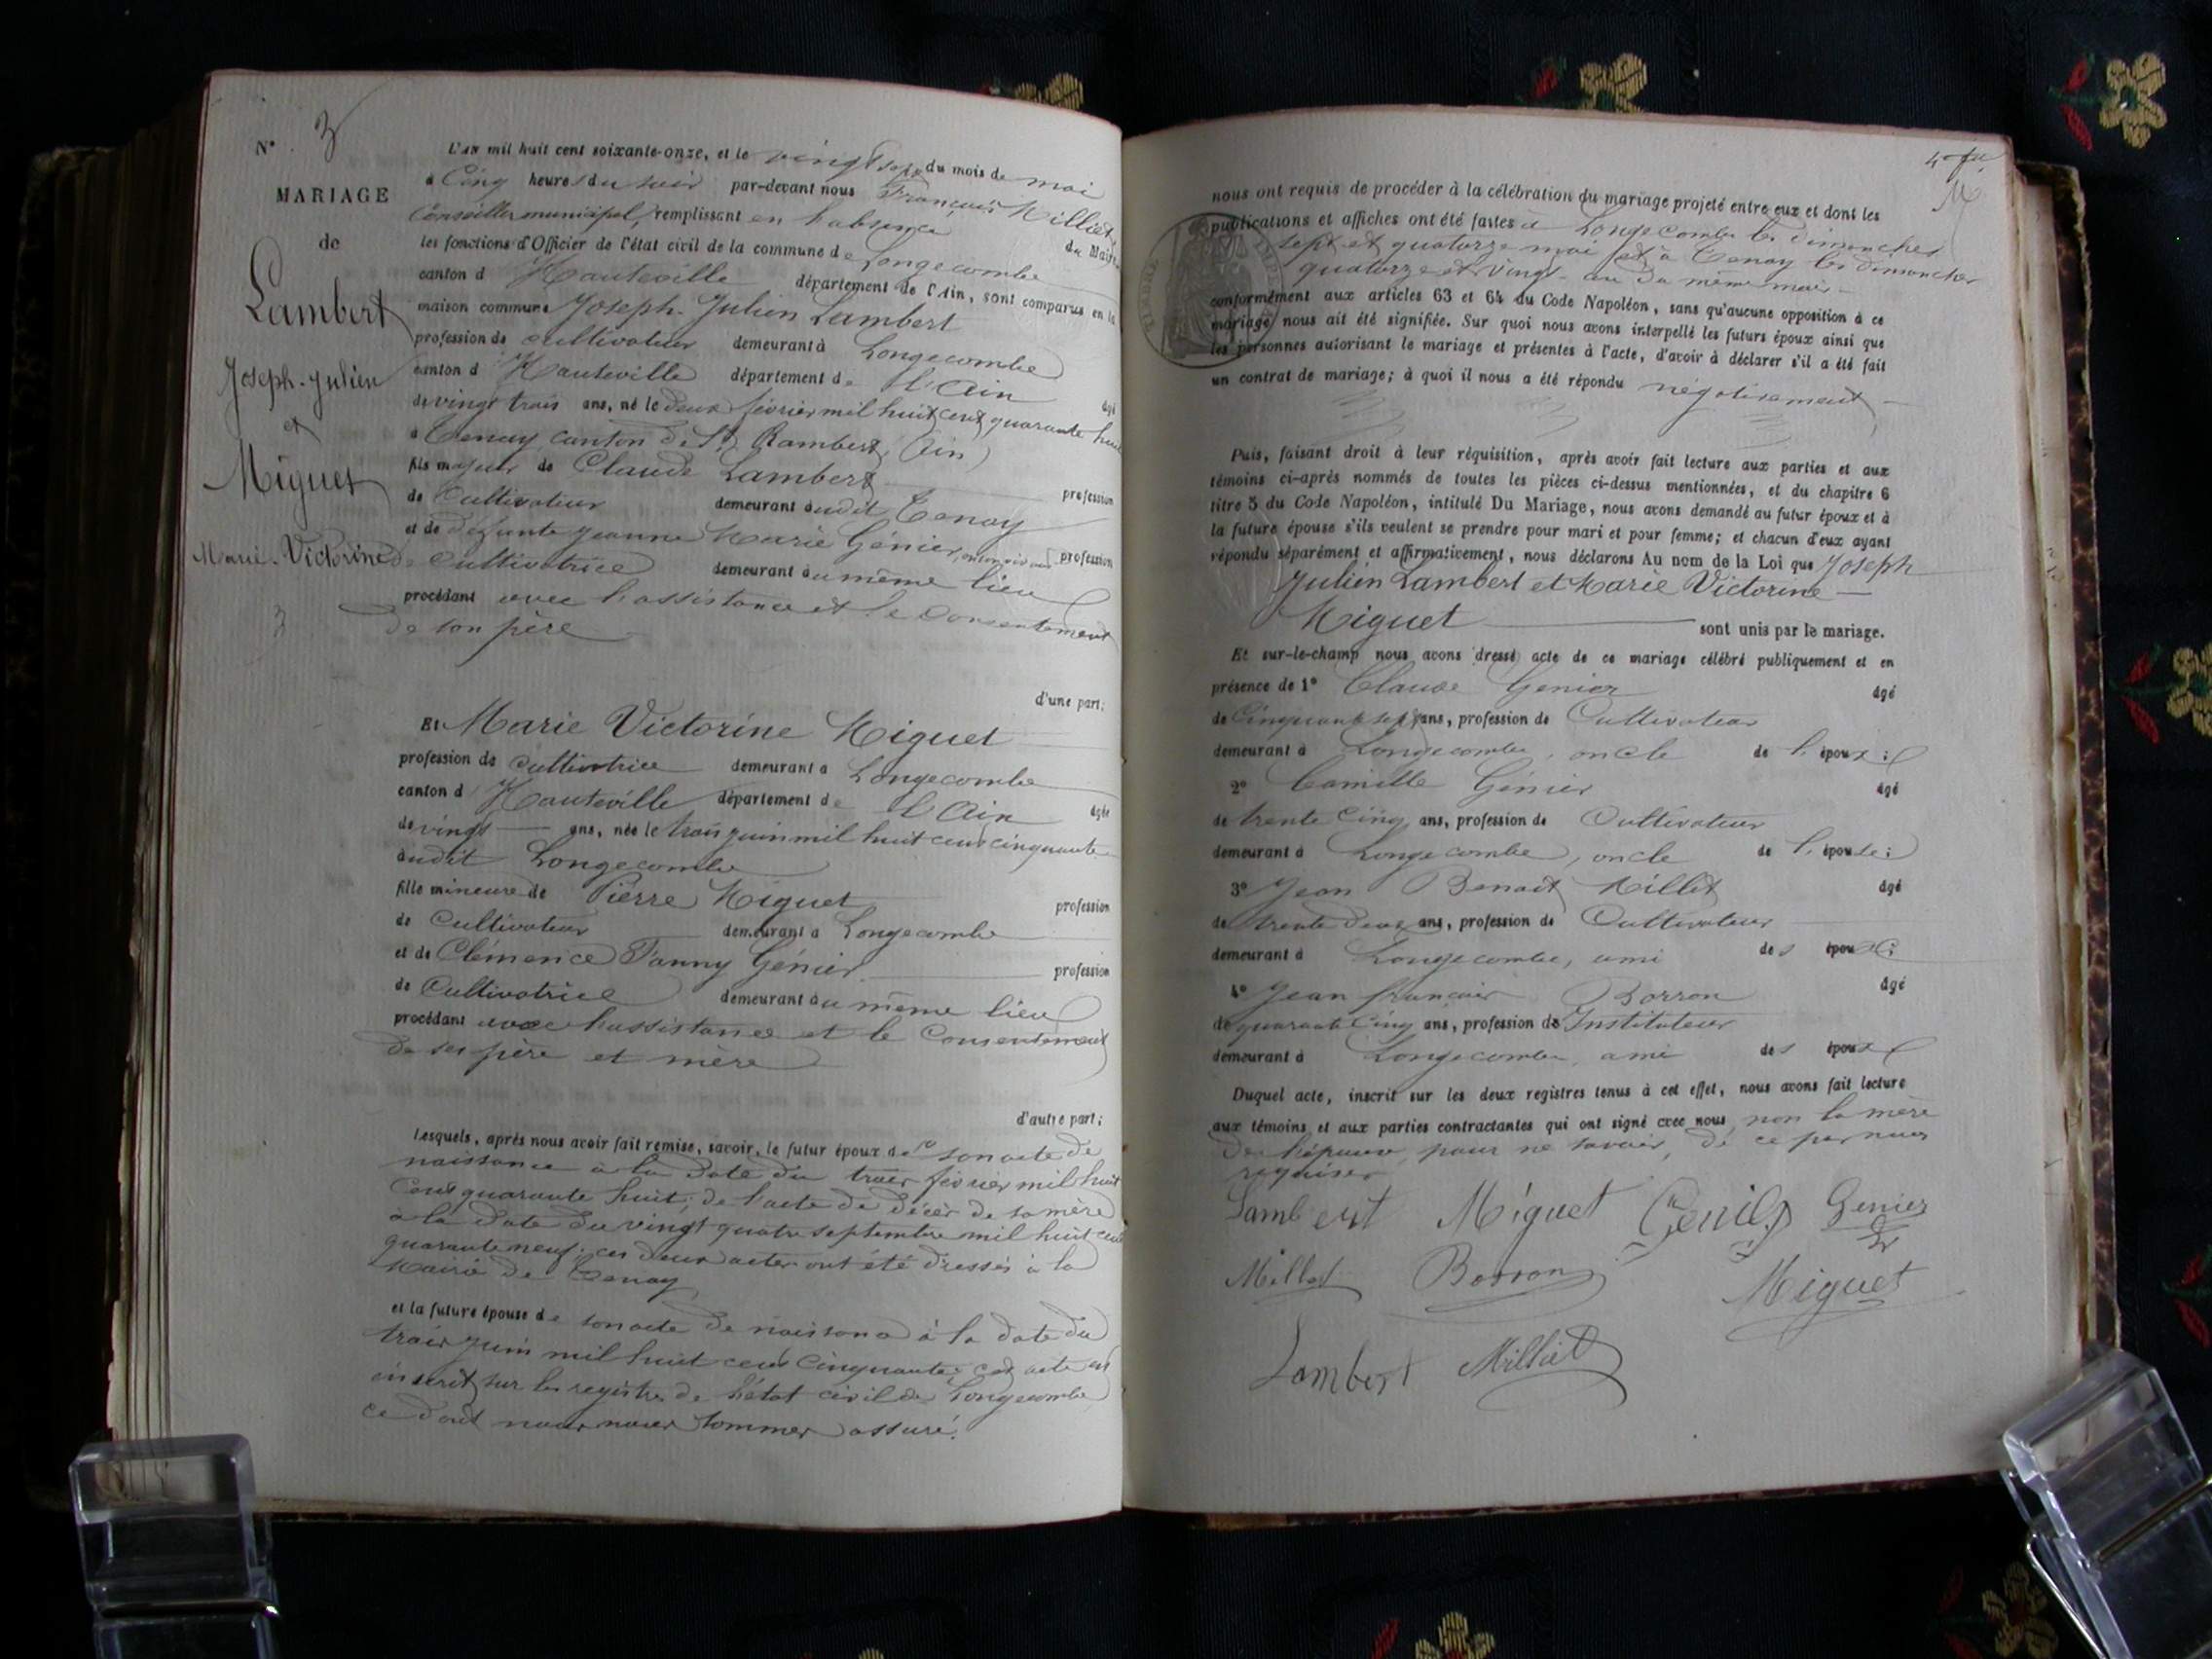 N° 3
MARIAGE
de
Lambert
Joseph-Julien
et
Miguet
Marie-Victorine
3
L'an mil huit cent soixante-onze, et le vingt sept du mois de mai
à Cinq heures du soir par-devant nous François Milliet,
Conseiller municipal, remplissant en l'absence du Maire
les fonctions d'Officier de l'état civil de la commune de Longecombe
canton d'Hauteville département de l'Ain, sont comparus en la
maison commune Joseph-Julien Lambert
profession de cultivateur demeurant à Longecombe
canton d'Hauteville département de l'Ain âgé
de vingt trois ans, né le deux février mil huit cent quarante huit
à Tenay canton de St Rambert (Ain)
fils majeur de Claude Lambert profession
de Cultivateur demeurant audit Tenay
et de défunte Jeanne Marie Génier, profession
de Cultivatrice demeurant au même lieu
procédant avec l'assistance et le consentement
de son père
d'une part;
Et Marie Victorine Miguet
profession de Cultivatrice demeurant à Longecombe
canton d'Hauteville département de l'Ain âgée
de vingt ans, née le trois juin mil huit cent cinquante
audit Longecombe
fille mineure de Pierre Miguet profession
de Cultivateur demeurant à Longecombe
et de Clémence Fanny Génier profession
de Cultivatrice demeurant au même lieu
procédant avec l'assistance et le Consentement
de ses père et mère
d'autre part;
Lesquels, après nous avoir fait remise, savoir, le futur époux de son acte de
naissance à la date du trois février mil huit
cent quarante huit; de l'acte de décès de sa mère
à la date du vingt quatre septembre mil huit cent
quarante neuf; ces deux actes ont été dressés à la
Mairie de Tenay
et la future épouse de son acte de naissance à la date du
trois juin mil huit cent cinquante; cet acte est
inscrit sur les registres de l'état civil de Longecombe
ce dont nous nous sommes assuré.
nous ont requis de procéder à la célébration du mariage projeté entre eux et dont les
publications et affiches ont été faites à Longecombe les dimanches
sept et quatorze mai et à Tenay les dimanches
quatorze et vingt-un du même mois
conformément aux articles 63 et 64 du Code Napoléon, sans qu'aucune opposition à ce
mariage nous ait été signifiée. Sur quoi nous avons interpellé les futurs époux ainsi que
les personnes autorisant le mariage et présentes à l'acte, d'avoir à déclarer s'il a été fait
un contrat de mariage; à quoi il nous a été répondu négativement
Puis, faisant droit à leur réquisition, après avoir fait lecture aux parties et aux
témoins ci-après nommés de toutes les pièces ci-dessus mentionnées, et du chapitre 6
titre 5 du Code Napoléon, intitulé Du Mariage, nous avons demandé au futur époux et à
la future épouse s'ils veulent se prendre pour mari et pour femme; et chacun d'eux ayant
répondu séparément et affirmativement, nous déclarons Au nom de la Loi que Joseph
Julien Lambert et Marie Victorine
Miguet sont unis par le mariage.
Et sur-le-champ nous avons dressé acte de ce mariage célébré publiquement et en
présence de 1° Claude Genier âgé
de Cinquante sept ans, profession de Cultivateur
demeurant à Longecombe, oncle de l'époux;
2° Camille Génier âgé
de trente cinq ans, profession de Cultivateur
demeurant à Longecombe, oncle de l'épouse;
3° Jean Benoit Millet âgé
de trente deux ans, profession de Cultivateur
demeurant à Longecombe, ami des époux;
4° Jean françois Borron âgé
de quarante Cinq ans, profession de Instituteur
demeurant à Longecombe, ami des époux
Duquel acte, inscrit sur les deux registres tenus à cet effet, nous avons fait lecture
aux témoins et aux parties contractantes qui ont signé avec nous non la mère
de l'épouse, pour ne savoir, de ce par nous
requise
Lambert Miguet Genier
Millet Borron Miguet
Lambert Milliet